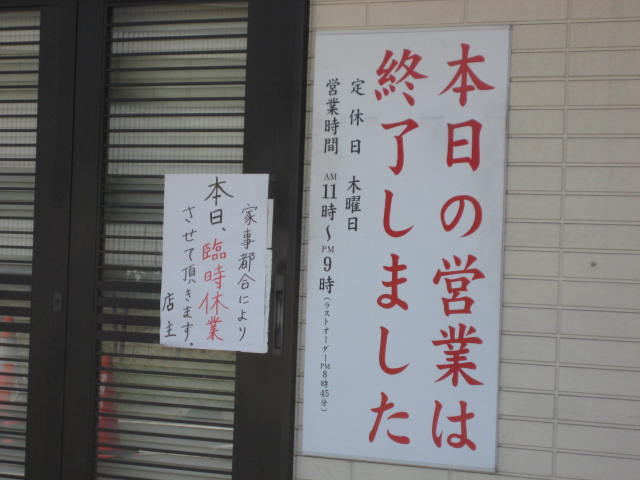 本日の営業は
終了しました
定休日 木曜日
営業時間 AM11時〜PM9時(ラストオーダーPM8時45分)
家事都合により
本日、臨時休業
させて頂きます.
店主